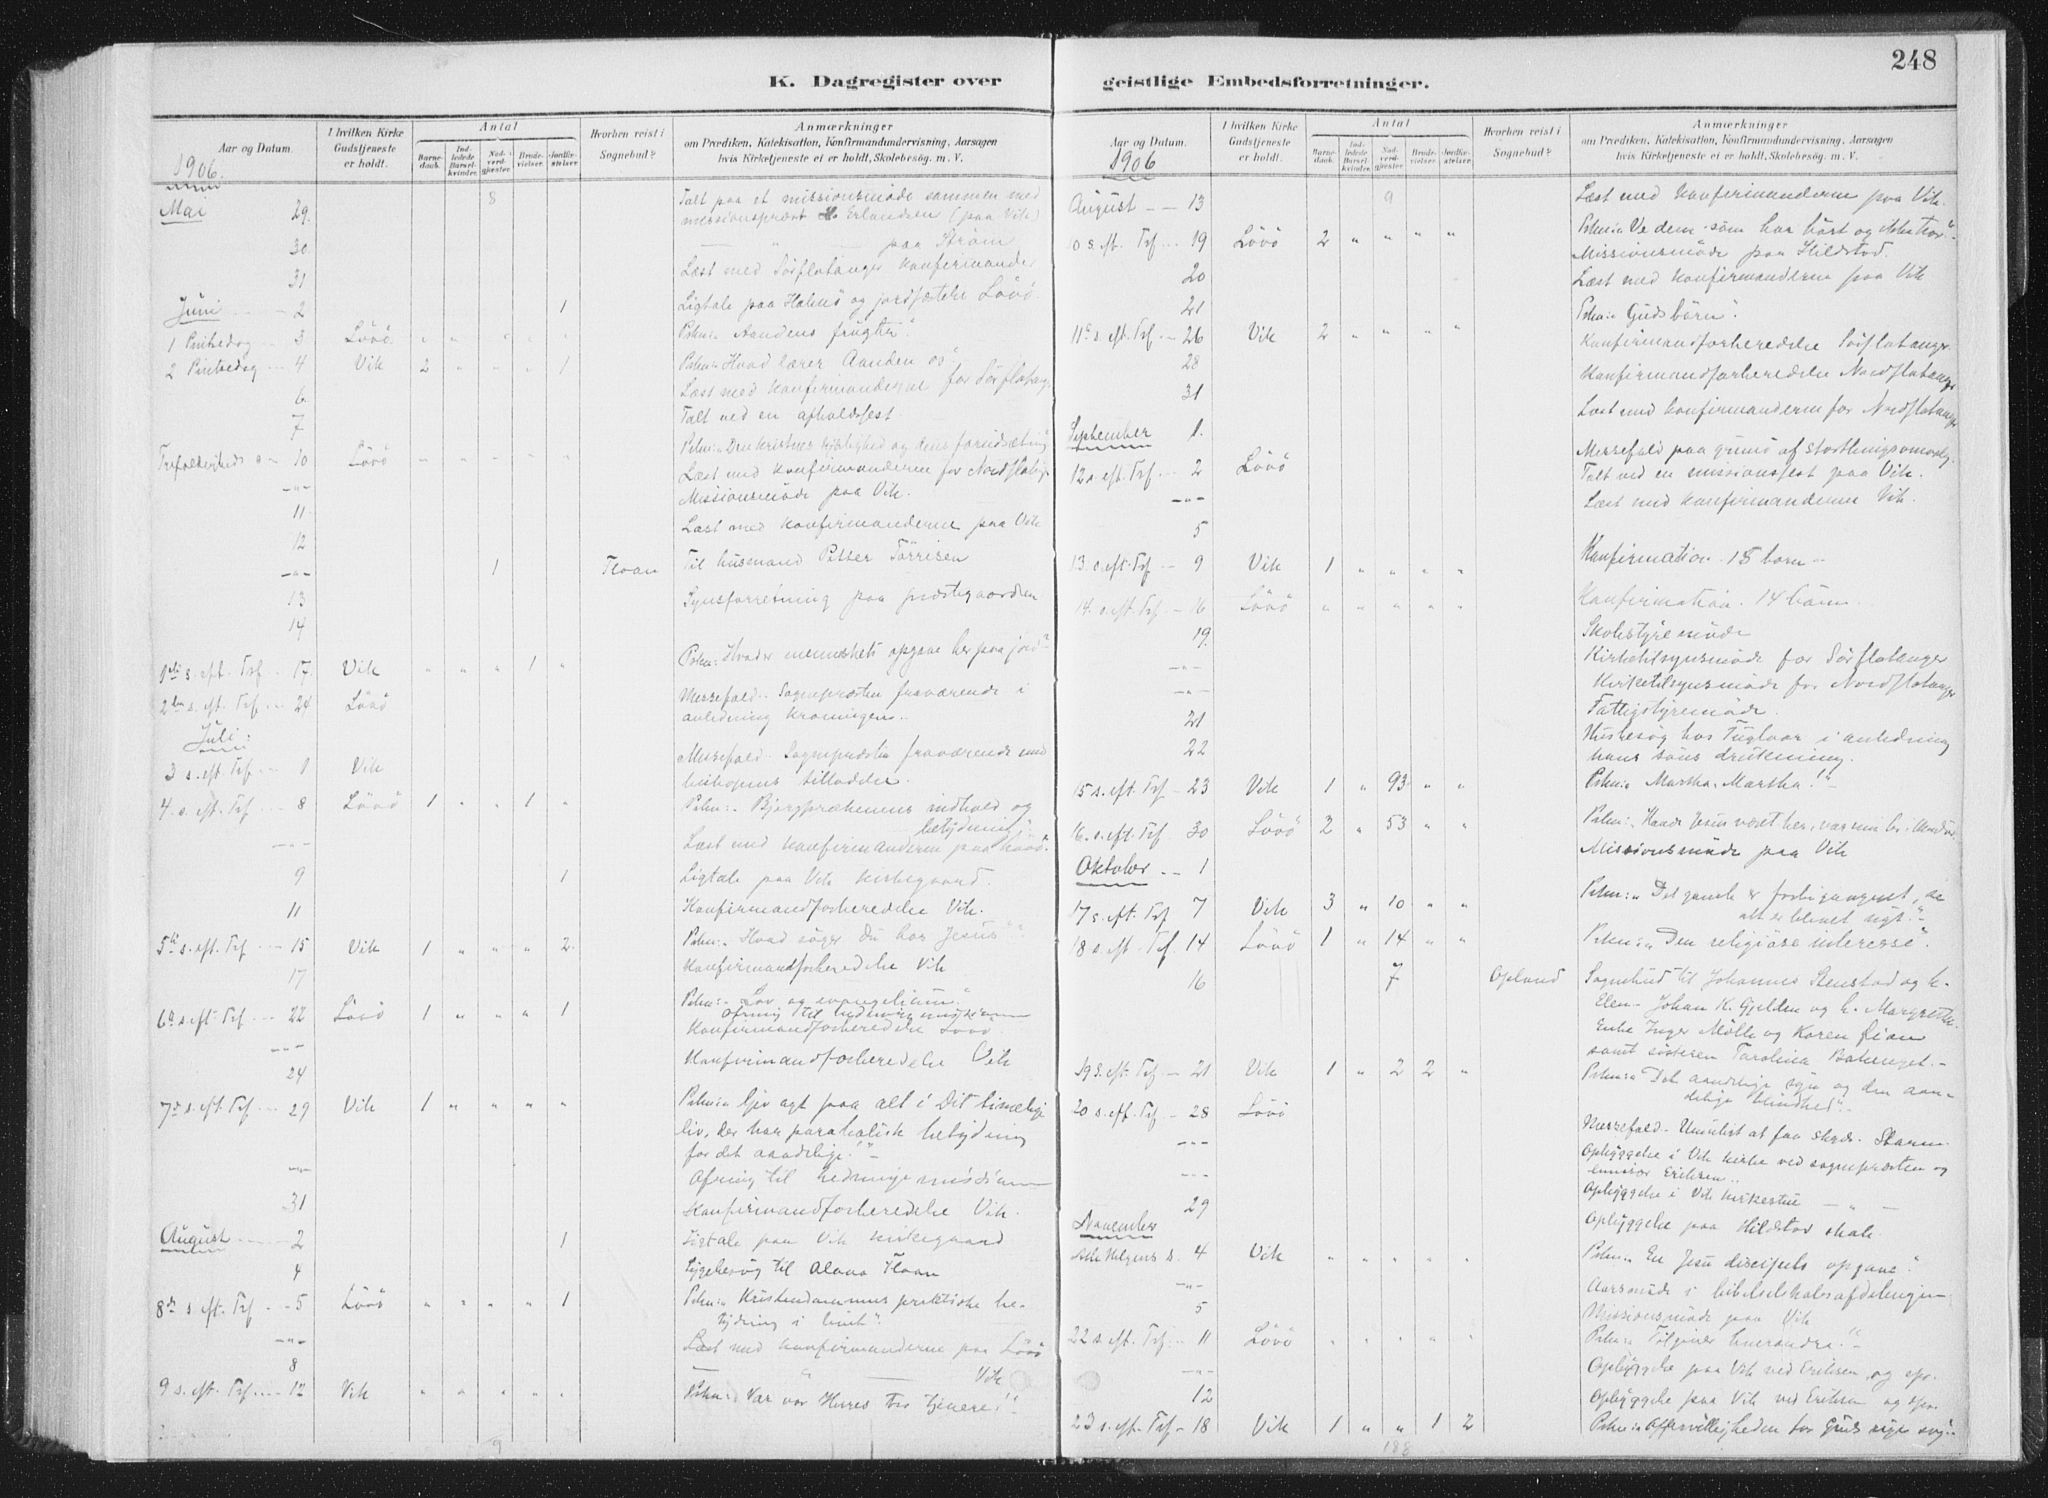 248
K. Dagregister over geistlige Embedsforretninger.
Aar og Datum.
I hvilken Kirke Gudstjeneste er holdt.
Antal
Barnedaab.
Indledede Barselkvinder.
Nadverdgjester
Brudevielser.
Jordfæstelser.
Hvorhen reist i Sognebud?
Anmærkninger
om Prædiken, Katekisation, Konfirmandundervisning, Aarsagen
hvis Kirketjeneste ei er holdt, Skolebesøg. m. V.
1906.
Mai 29. 8 Talt paa et missionsmøde sammen med
missionspræst Erlandsen (paa Vik)
30. — " — paa Strøm
31 Læst med Sørflatanger konfirmander
Juni 2 1 Ligtale paa Halmø og jordfæstelse Lövö.
1 Pintsedag 3 Lövö " " " " " Pdkn: "Aandens frugter"
2 Pintsedag 4 Vik 2 " " " 1 Pdkn: "Hvad lærer Aanden os"
6. Læst med konfirmanderne for Sørflatang.
7 Talt ved en afholdsfest.
Trefoldigheds s 10 Lövö " " " " " Pdkn: "Den kristnes kjærlighed og dens forudsætning
—"— Læst med konfirmanderne for Nordflatang.
11. Missionsmøde paa Vik.
12 Læst med konfirmanderne paa Vik
—"— 1 Floan Til husmand Petter Tørrisen
13 Synsforretning paa præstegaarden
14
1ste s. eft. Trf. 17. Vik " " " 1 " Pdkn: "Hvad er menneskets opgave her paa jord"
2den s. eft. Trf. 24 Lövö Messefald. Sognepræsten fraværende i
anledning kroningen.
Juli
3 s. eft. Trf. 1 Vik Messefald. Sognepræsten fraværende med
biskopens tilladelse.
4. s. eft. Trf. 8 Lövö 1 " " 1 " Pdkn: "Bjergprækenens indhold og
betydning"
—"— Læst med konfirmanderne paa Lövö.
9 1 Ligtale paa Vik kirkegaard.
11 Konfirmandforberedelse Vik.
5te s. eft. Trf 15 Vik 1 " " " 2 Pdkn: "Hvad søger du hos Jesus"?
17 Konfirmandforberedelse Vik
6te s. eft. Trf. 22 Lövö 1 " " " 1 Pdkn: "Lov og evangelium."
Ofring til hedningemissionen
—"— Konfirmandforberedelse Lövö.
24 Konfirmandforberedelse Vik
7de s. eft. Trf. 29 Vik 1 " " " " Pdkn: "Giv agt paa alt i Dit timelige
liv, der har parabolisk betydning
for det aandelige!"
—"— Ofring til hedningemissionen
31 Konfirmandforberedelse Vik.
August 2 1 Ligtale paa Vik kirkegaard
4 Sygebesøg til Floan
8de s. eft. Trf. 5 Lövö " " " " 1 Pdkn: "Kristendommens praktiske be-
tydning i livet".
—"— Læst med konfirmanderne paa Lövö
8 — " — Vik
9 s. eft. Trf. 12 Vik " " " " " Pdkn: "Vær vor Herres tro tjenere!"
9
Aar og Datum.
I hvilken Kirke Gudstjeneste er holdt.
Antal
Barnedaab.
Indledede Barselkvinder.
Nadverdgjester
Brudevielser.
Jordfæstelser.
Hvorhen reist i Sognebud?
Anmærkninger
om Prædiken, Katekisation, Konfirmandundervisning, Aarsagen
hvis Kirketjeneste ei er holdt, Skolebesøg. m. V.
1906
August 13 9 Læst med konfirmanderne paa Vik.
10 s. eft. Trf. 19 Lövö 2 " " " " Pdkn: "Ve dem som har hørt og ikke tror."
20 Missionsmøde paa Hildstad.
21 Læst med konfirmanderne paa Vik
11te s. eft. Trf. 26 Vik 2 " " " " Pdkn: "Gudsbørn".
28 Konfirmandforberedelse Sørflatanger
31 Konfirmandforberedelse Nordflatanger
September 1. Læst med konfirmanderne for Nordflatanger
12 s. eft. Trf. 2 Lövö Messefald paa grund af stortlingsomvalg.
—"— Talt ved en missionsfest paa Vik.
5 Læst med konfirmanderne Vik.
13. s. eft. Trf. 9 Vik 1 " " " " Konfirmation. 15 born
14. s. eft. Trf. 16 Lövö " " " " " Konfirmation. 14 børn
19. Skolestyremøde
—"— Kirketilsynsmøde for Sørflatanger
—"— Kirketilsynsmøde for Nordflatanger
21 Fattigstyremøde.
22 Husbesøg hos Fuglvær i anledning
hans søns drukning.
15 s. eft. Trf. 23 Vik 1 " 93 " " Pdkn: "Martha. Martha!"
16. s. eft. Trf. 30 Lövö 2 " 53 " " Pdkn: "Havde Jesus været her, var min br. ikke død."
Oktober 1 Missionsmøde paa Vik
17 s. eft. Trf 7 Vik 3 " 10 " " Pdkn: "Det gamle er forbigangent, se
alt er blevet nyt".
18 s. eft. Trf. 14 Lövö 1 " 14 " " Pdkn: "Den religiøse interesse".
16 7 Opland Sognebud til Johannes Stenstad og h.
Elen. Johan K. Gjelden og h. Margrethe.
Enke Inger Mölle og Karen Lian
samt søsteren
19 s. eft. Trf. 21 Vik 1 " 2 2 " Pdkn: "Det aandelige syn og den aan-
delige blindhed".
20 s. eft. Trf. 28 Lövö Messefald. Umulist at faa skyds. Storm.
—"— Opbyggelse i Vik kirke ved sognepræsten og
emissær Eriksen.
—"— Opbyggelse i Vik kirkestue — " —
29 Opbyggelse paa Hildstad skole.
November
Alle Helgens s. 4 Vik " " " " " Pdkn: "En Jesu discipels opgave".
—"— Aarsmøde i bibelselskabsafdelingen
5 Missionsmøde paa Vik
22 s. eft. Trf. 11 Lövö " " " " " Pdkn: "Tilgiver hverandre!"
—"— Opbyggelse paa Vik ved Eriksen og spr.
12 Opbyggelse paa Vik ved Eriksen og spr.
23 s. eft. Trf. 18 Vik 1 " " 1 2 Pdkn: "Offervilligheden for Guds riges
188